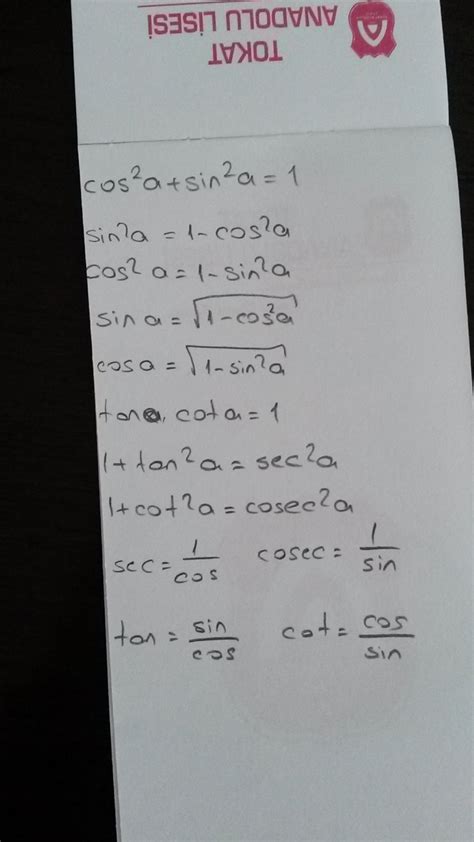 TOKAT
ANADOLU LİSESİ
cos²a+sin²a=1
sin²a = 1-cos²a
cos²a = 1-sin²a
sin a = √1-cos²a
cosa = √1-sin²a
tana. cota=1
1+tan²a = sec²a
1+cot²a = cosec²a
sec = 1/cos cosec = 1/sin
tan = sin/cos cot = cos/sin